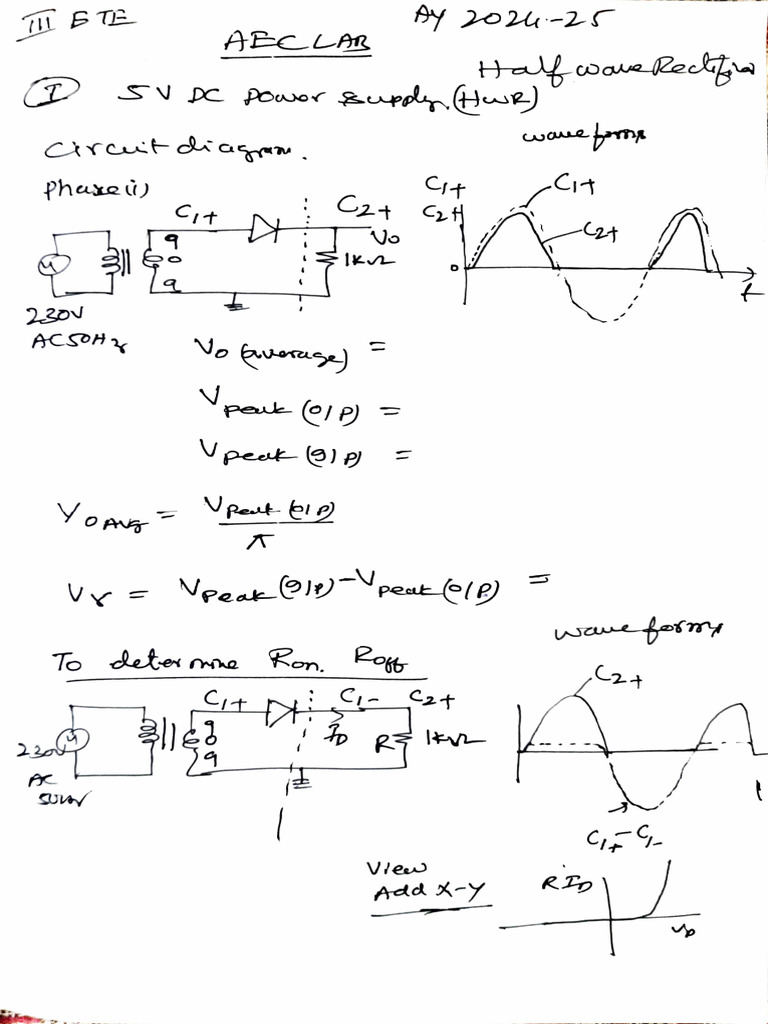 III ETE
AY 2024-25
AEC LAB
Half wave Rectifier
I 5V DC power supply (HWR)
Circuit diagram.
waveforms
Phase(i)
C1+
C2+
Vo
9
0
9
1KΩ
230V
AC 50Hz
C1+
C2+
C1+
C2+
0
t
Vo (average) =
Vpeak (O/P) =
Vpeak (I/P) =
Vo Avg = Vpeak (O/P) / π
Vγ = Vpeak (I/P) - Vpeak (O/P) =
waveforms
To determine Ron. Roff
C1+
C1-
C2+
9
0
9
ID
R
1KΩ
230V
AC
C2+
C1+ - C1-
View
Add X-Y
RID
VD